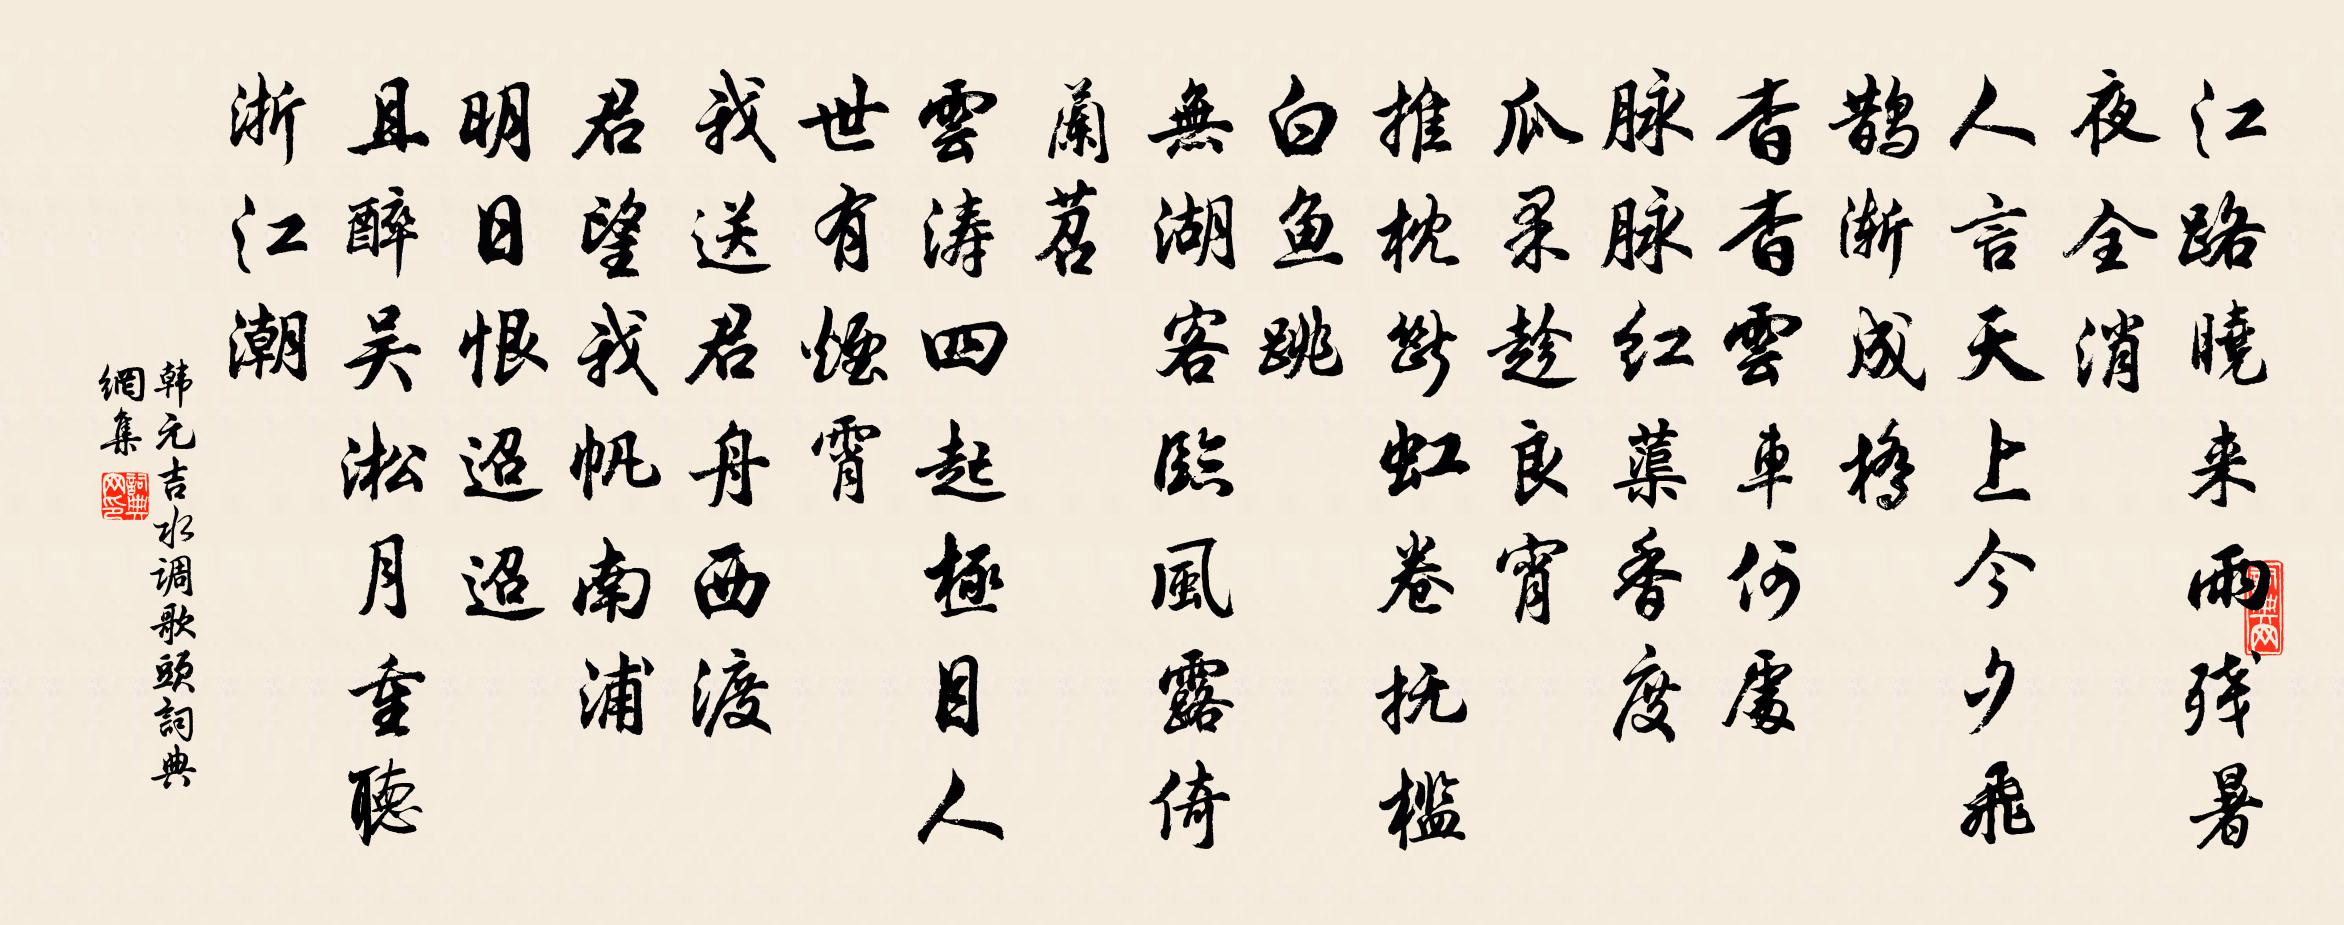 江路曉来雨残暑
夜全消
人言天上今夕飛
鹊渐成橋
杳杳雲車何處
脉脉红蕖香度
瓜果趁良宵
推枕斷虹卷抚檻
白鱼跳
無湖客臨風露倚
蘭苕
雲涛四起極目人
世有煙霄
我送君舟西渡
君望我帆南浦
明日恨迢迢
且醉吴淞月重聽
浙江潮
韩元吉水调歌頭詞典
網集
詞典网印